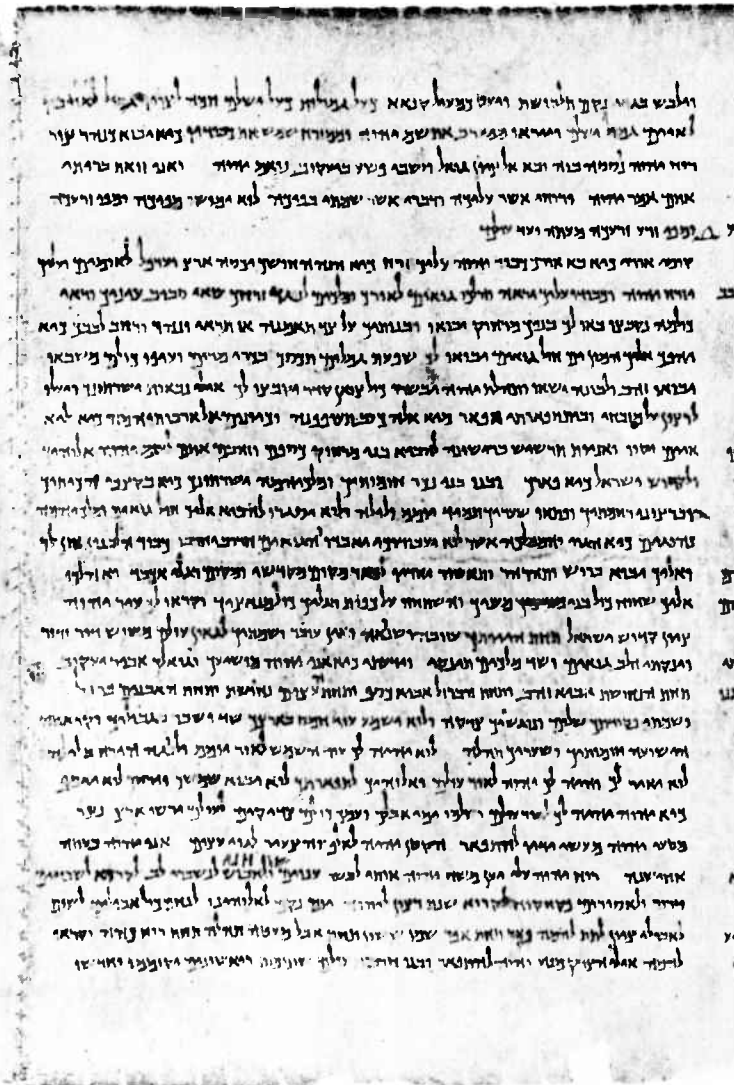 וילבש בגדי נקם תלבושת ויעט כמעיל קנאה כעל גמולות כעל ישלם חמה לצריו גמול לאויביו
לאיים גמול ישלם ויראו ממערב את שם יהוה וממזרח שמש את כבודו כיא יבוא כנהר צור
רוח יהוה נססה בוה ובא אל ציון גואל ולשבי פשע ביעקוב נואם יהוה ואני זואת בריתי
אותם אמר יהוה ורוחי אשר עליכה ודברי אשר שמתי בפיכה לוא ימושו מפיכה ומפי זרעכה
ומפי זרע זרעכה מעתה ועד עולם
קומי אורי כיא בא אורך וכבוד יהוה עליך זרח כיא הנה החושך יכסה ארץ וערפל לאומים ועליך
יזרח יהוה וכבודו עליך יראה והלכו גואים לאורך ומלכים לנגד זרחך שאי סביב עיניך וראי
כולם נקבצו באו לך בניך מרחוק יבואו ובנותיך על צד תאמנה אז תראי ונהרת ורהב לבבך כיא
יהפך אליך המון ים חיל גואים יבואו לך שפעת גמלים תכסך בכרי מדים ועיפו כולם משבאו
יבואו זהב ולבונה ישאו ותהלת יהוה יבשרו כול צאן קדר יקבצו לך אילי נבאות ישרתונך ויעלו
לרצון על מזבחי ובית תפארתי אפאר מיא אלה כעב תעופפנה וכיונים אל ארבותיהמה כיא ליא
איים יקוו ואניות תרשיש בראישונה להביא בני מרחוק כספם וזהבם אתם לשם יהוה אלוהיך
ולקדוש ישראל כיא פארך ובנו בני נכר חומותיך ומלכיהמה ישרתונך כיא בקצפי הכיתיך
וברצוני רחמתיך ופתחו שעריך תמיד יומם ולילה ולוא יסגרו להביא אליך חיל גואים ומלכיהמה
נהוגים כיא הגוי והממלכה אשר לוא יעבודוך יאבדו והגואים חרוב יחרבו כבוד הלבנון נתן לך
ואליך יבוא ברוש ותהרהר ותאשור יחדיו לפאר מקום מקדשי ומקום רגלי אכבד והלכו
אליך שחוח כול בני מעניך והשתחוו על כפות רגליך כול מנאציך וקראו לך עיר יהוה
ציון קדוש ישראל תחת היותך עזובה ושנואה ואין עובר ושמתיך לגאון עולם משוש דור ודור
וינקתי חלב גואים ושד מלכים תינקי וידעתי כיא אני יהוה מושיעך וגואלך אביר יעקוב
תחת הנחושת אביא זהב ותחת הברזל אביא כסף ותחת העצים נחושת ותחת האבנים ברזל
ושמתי פקודתך שלום ונוגשיך צדקה ולוא ישמע עוד חמס בארצך שוד ושבר בגבוליך וקראתי
הישועה חומותיך ושעריך תהלה לוא יהיה לך עוד השמש לאור יומם ולנגה הירח בלילה
לוא יאיר לך והיה לך יהוה לאור עולם ואלוהיך לתפארתך לוא יבוא שמשך וירחך לוא יאסף
כיא יהוה יהיה לך לאור עולם ושלמו ימי אבלך ועמך כולם צדיקים לעולם ירשו ארץ נצר
מטעי יהוה מעשי ידיו להתפאר הקטן יהיה לאלף והצעיר לגוי עצום אני יהוה בעתה
אחישנה רוח יהוה עלי יען משח יהוה אותי לבשר ענוים שלחני ולחבוש לנשברי לב לקרוא לשבויים
דרור ולאסורים פקחקוח לקרוא שנת רצון ליהוה יום נקם לאלוהינו לנחם כול אבלים לשום
לאבלי ציון לתת להמה פאר תחת אפר שמן ששון תחת אבל מעטה תהלה תחת רוח כהה וקראו
להמה אילי הצדק מטע יהוה להתפאר ובנו חרבות עולם שוממות ראישונים יקוממו וחדשו